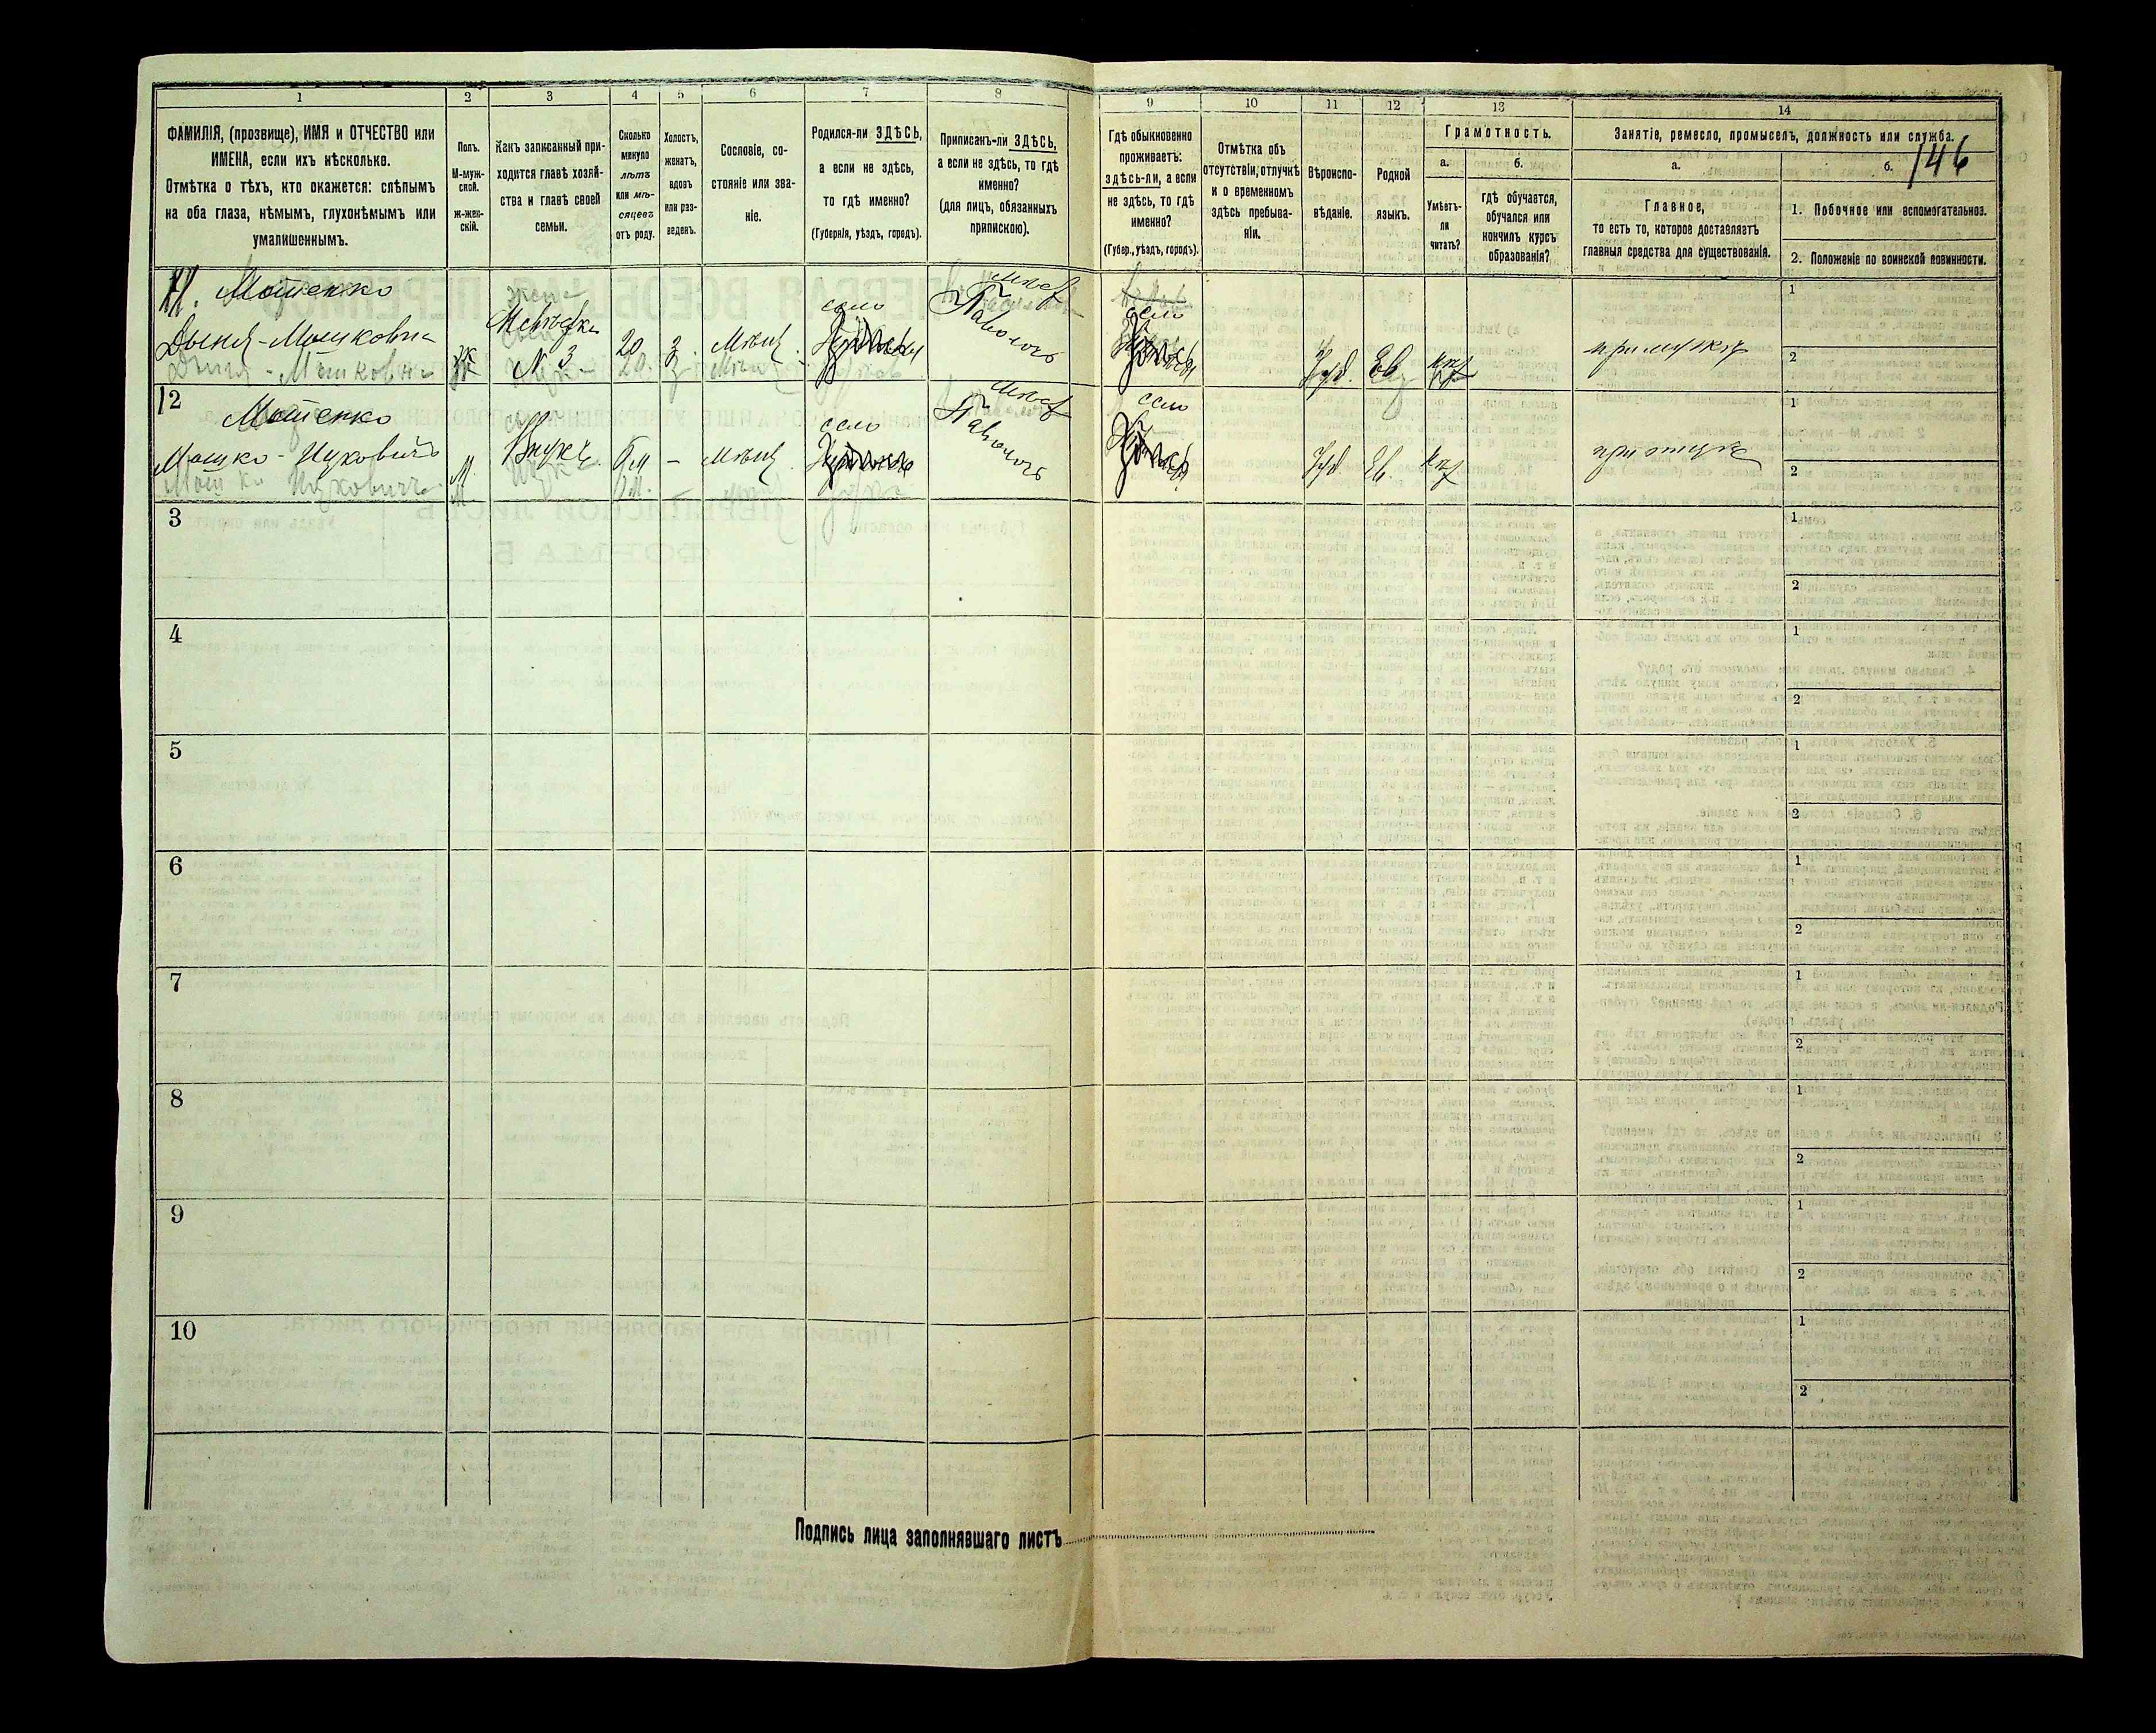 1 2 3 4 5 6 7 8 9 10 11 12 13 14
146
ФАМИЛІЯ, (прозвище), ИМЯ и ОТЧЕСТВО или
ИМЕНА, если ихъ нѣсколько.
Отмѣтка о тѣхъ, кто окажется: слѣпымъ
на оба глаза, нѣмымъ, глухонѣмымъ или
умалишеннымъ.
Полъ.
М-муж-
ской.
ж-жен-
скій.
Какъ записанный при-
ходится главѣ хозяй-
ства и главѣ своей
семьи.
Сколько
минуло
лѣтъ
или мѣ-
сяцевъ
отъ роду.
Холостъ,
женатъ,
вдовъ
или раз-
веденъ.
Сословіе, со-
стояніе или зва-
ніе.
Родился-ли ЗДѢСЬ,
а если не здѣсь,
то гдѣ именно?
(Губернія, уѣздъ, городъ).
Приписанъ-ли ЗДѢСЬ,
а если не здѣсь, то гдѣ
именно?
(для лицъ, обязанныхъ
припискою).
Гдѣ обыкновенно
проживаетъ:
здѣсь-ли, а если
не здѣсь, то гдѣ
именно?
(Губер., уѣздъ, городъ).
Отмѣтка объ
отсутствіи, отлучкѣ
и о временномъ
здѣсь пребыва-
ніи.
Вѣроиспо-
вѣданіе.
Родной
языкъ.
Грамотность.
а.
Умѣетъ-
ли
читать?
б.
гдѣ обучается,
обучался или
кончилъ курсъ
образованія?
Занятіе, ремесло, промыселъ, должность или служба.
а.
Главное,
то есть то, которое доставляетъ
главныя средства для существованія.
б.
1. Побочное или вспомогательное.
2. Положеніе по воинской повинности.
11. Мотенко
Дыня-Мошковна
ж
жена
№ 3
20
з
Мѣщ.
село
Паволочь
село
Іуд. Ев.
при мужѣ
1
2
12 Мотенко
Мошко-Ицковичъ
М.
Внукъ.
6м
-
Мѣщ.
село
Паволочь
село
Іуд. Ев.
при отцѣ
1
2
3
1
2
4
1
2
5
1
2
6
1
2
7
1
2
8
1
2
9
1
2
10
1
2
Подпись лица заполнявшаго листъ